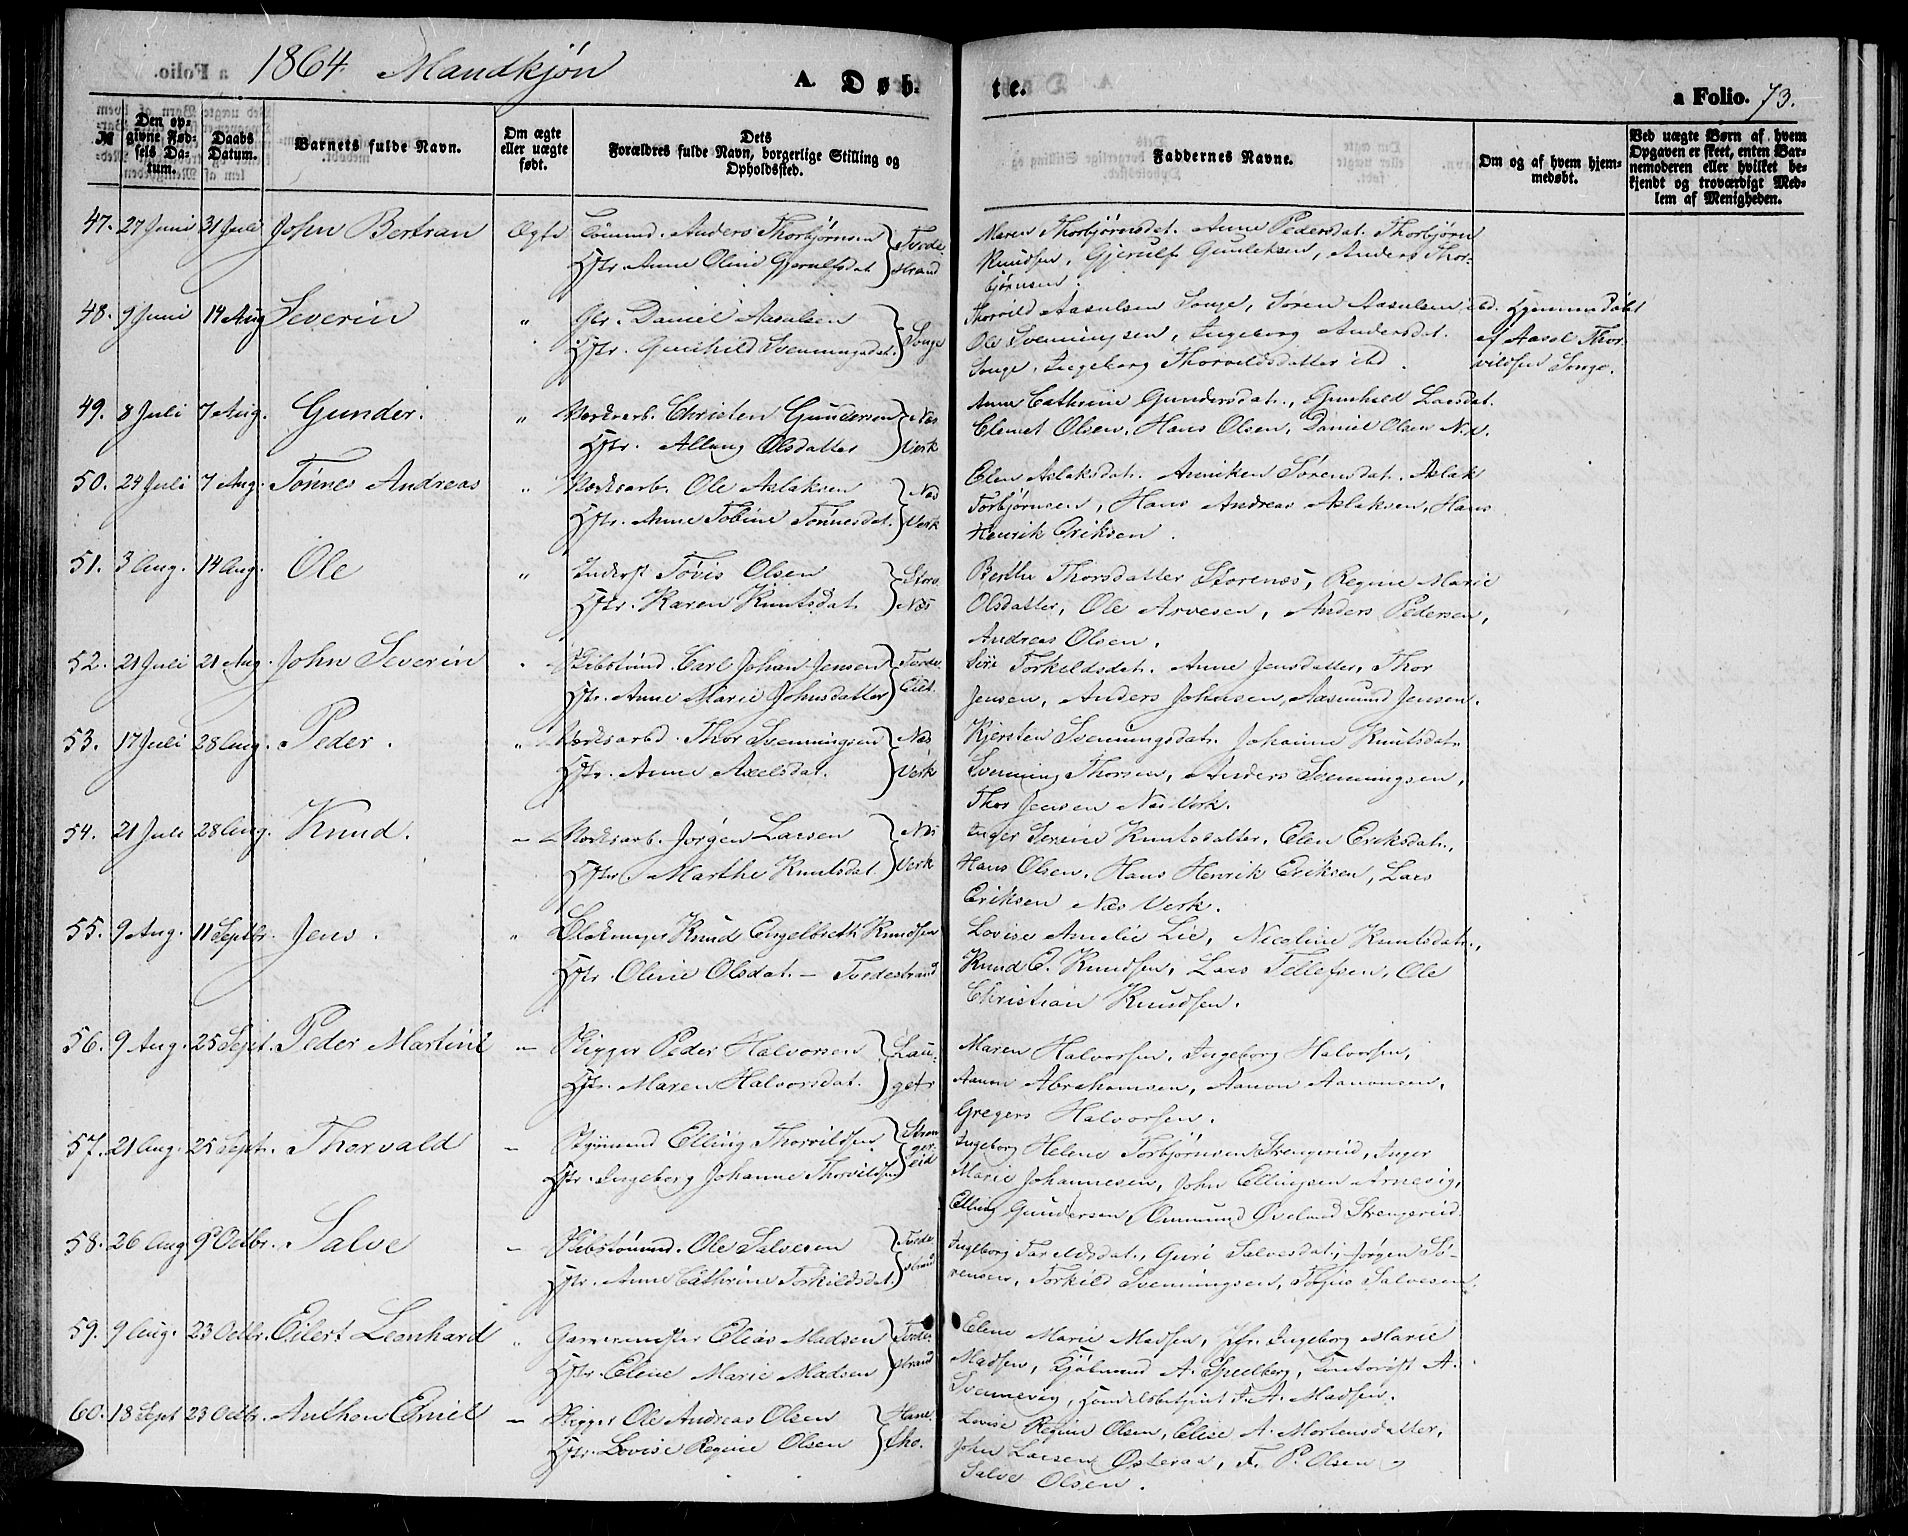 1864. Mandkjøn
A. Døbte.
a Folio. 73.
№
Den opgivne Fødsels Datum.
Daabs Datum.
Barnets fulde Navn.
Om ægte eller uægte født.
Dets Forældres fulde Navn, borgerlige Stilling og Opholdssted.
Faddernes Navne.
Om og af hvem hjemmedøbt.
Ved uægte Børn af hvem Opgaven er skeet, enten Barnemoderen eller hvilket bekjendt og troværdigt Medlem af Menigheden.
47. 27 Juni 31 Juli John Bertran Ægte Tømmd. Anders Thorbjørnsen Tvede-
Hstr. Anne Oline Gjerulfsdat strand
Maren Thorbjørnsdat. Anne Pedersdat. Thorbjørn
Knudsen, Gjerulf Gunleksen, Anders Thor-
bjørnsen.
48. 9 Juni 14 Aug Severin " Gbr. Daniel Aasulsen
Hstr. Gunhild Svenningsdat. Songe
Thorvild Aasulsen Songe, Søren Aasulsen ibd. Hjemmedøbt
Ole Svenningsen, Ingeborg Andersdat. af Aasol Thor-
Songe, Ingeborg Thorvildsdatter ibd. vildsen Songe.
49. 8 Juli 7 Aug. Gunder. " Værksarb. Christen Gundersen Næs
Hstr. Allaug Olsdatter Værk
Anne Cathrine Gundersdat., Gunhild Larsdat.
Clemet Olsen, Hans Olsen, Daniel Olsen N.V.
50. 24 Juli 7 Aug. Tønnes Andreas " Værksarb. Ole Aslaksen Næs
Hstr. Anne Tobine Tønnesdat. Værk
Elen Aslaksdat. Anniken Sørensdat. Aslak
Torbjørnsen, Hans Andreas Aslaksen, Hans
Henrik Eriksen.
51. 3 Aug. 14 Aug. Ole " Inderst Tovis Olsen Store
Hstr. Karen Knutsdat. Næs
Berthe Thorsdatter Storenæs, Regine Marie
Olsdatter, Ole Arvesen, Anders Pedersen,
Andreas Olsen.
52. 21 Juli 21 Aug. John Severin " Skibstømmd. Carl Johan Jensen
Hstr. Anne Marie Johnsdatter
Siri Torkildsdat. Anne Jensdatter, Thor
Jensen, Anders Johnsen, Aasmund Jensen.
53. 17 Juli 28 Aug. Peder. " Værksarbd. Thor Svenningsen Næs
Hstr. Anne Axelsdat. Værk
Kjersten Svenningsdat. Johanne Knutsdat.
Svenning Thorsen, Anders Svenningsen,
Thor Jensen Næs Værk.
54. 21 Juli 28 Aug. Knud. " Værksarb. Jørgen Larsen Næs
Hstr. Marthe Knutsdat Værk
Inger Serine Knutsdatter, Elen Eriksdat.,
Hans Olsen, Hans Henrik Eriksen, Lars
Eriksen Næs Værk.
55. 9 Aug. 11 Septbr. Jens. " Blokmager Knud Engelbreth Knudsen
Hstr. Oline Olsdat. – Tvedestrand
Lovise Amelie Lie, Nicoline Knutsdat.,
Knud E. Knudsen, Lars Tellefsen, Ole
Christian Knudsen.
56. 9 Aug. 25 Sept. Peder Martini – Rigger Peder Halvorsen
Hstr. Maren Halvorsdat.
Maren Halvorsen, Ingeborg Halvorsen,
Aanon Abrahamsen, Aanon Aanonsen,
Gregers Halvorsen.
57. 21 Aug. 25 Sept. Thorvald – Styrmand Elling Thorvildsen Stren-
Hstr. Ingeborg Johanne Thorvildsen ger-
eid
Ingeborg Helene Torbjørnsen Strengereid, Inger
Marie Johannesen, John Ellingsen Arnevig,
Elling Gundersen, Ommund Øveland Strengereid.
58. 26 Aug 9 Octbr. Salve – Skibstømmd. Ole Salvesen Tvede-
Hstr. Anne Cathrine Torkildsdat. strand
Ingeborg Taraldsdat., Guri Salvesdat., Jørgen Sø-
rensen, Torkild Svenningsen, Salvesen.
59. 9 Aug. 23 Octbr. Eilert Leonhard " Garvermester Elias Madsen Tvede-
Hstr. Elene Marie Madsen strand
Elene Marie Madsen, Jfr. Ingeborg Marie
Madsen, Kjøbmand A. Spedberg, Contorist A.
Svennevig, Handelsbetjent F. A. Madsen.
60. 18 Sept 23 Octbr. Anthon Emil – Rigger Ole Andreas Olsen Hane-
Hstr. Lovise Regine Olsen sho.
Lovise Regine Olsen, Elise A. Mortensdatter,
John Larsen Østeraa, F. P. Olsen
Salve Olsen.